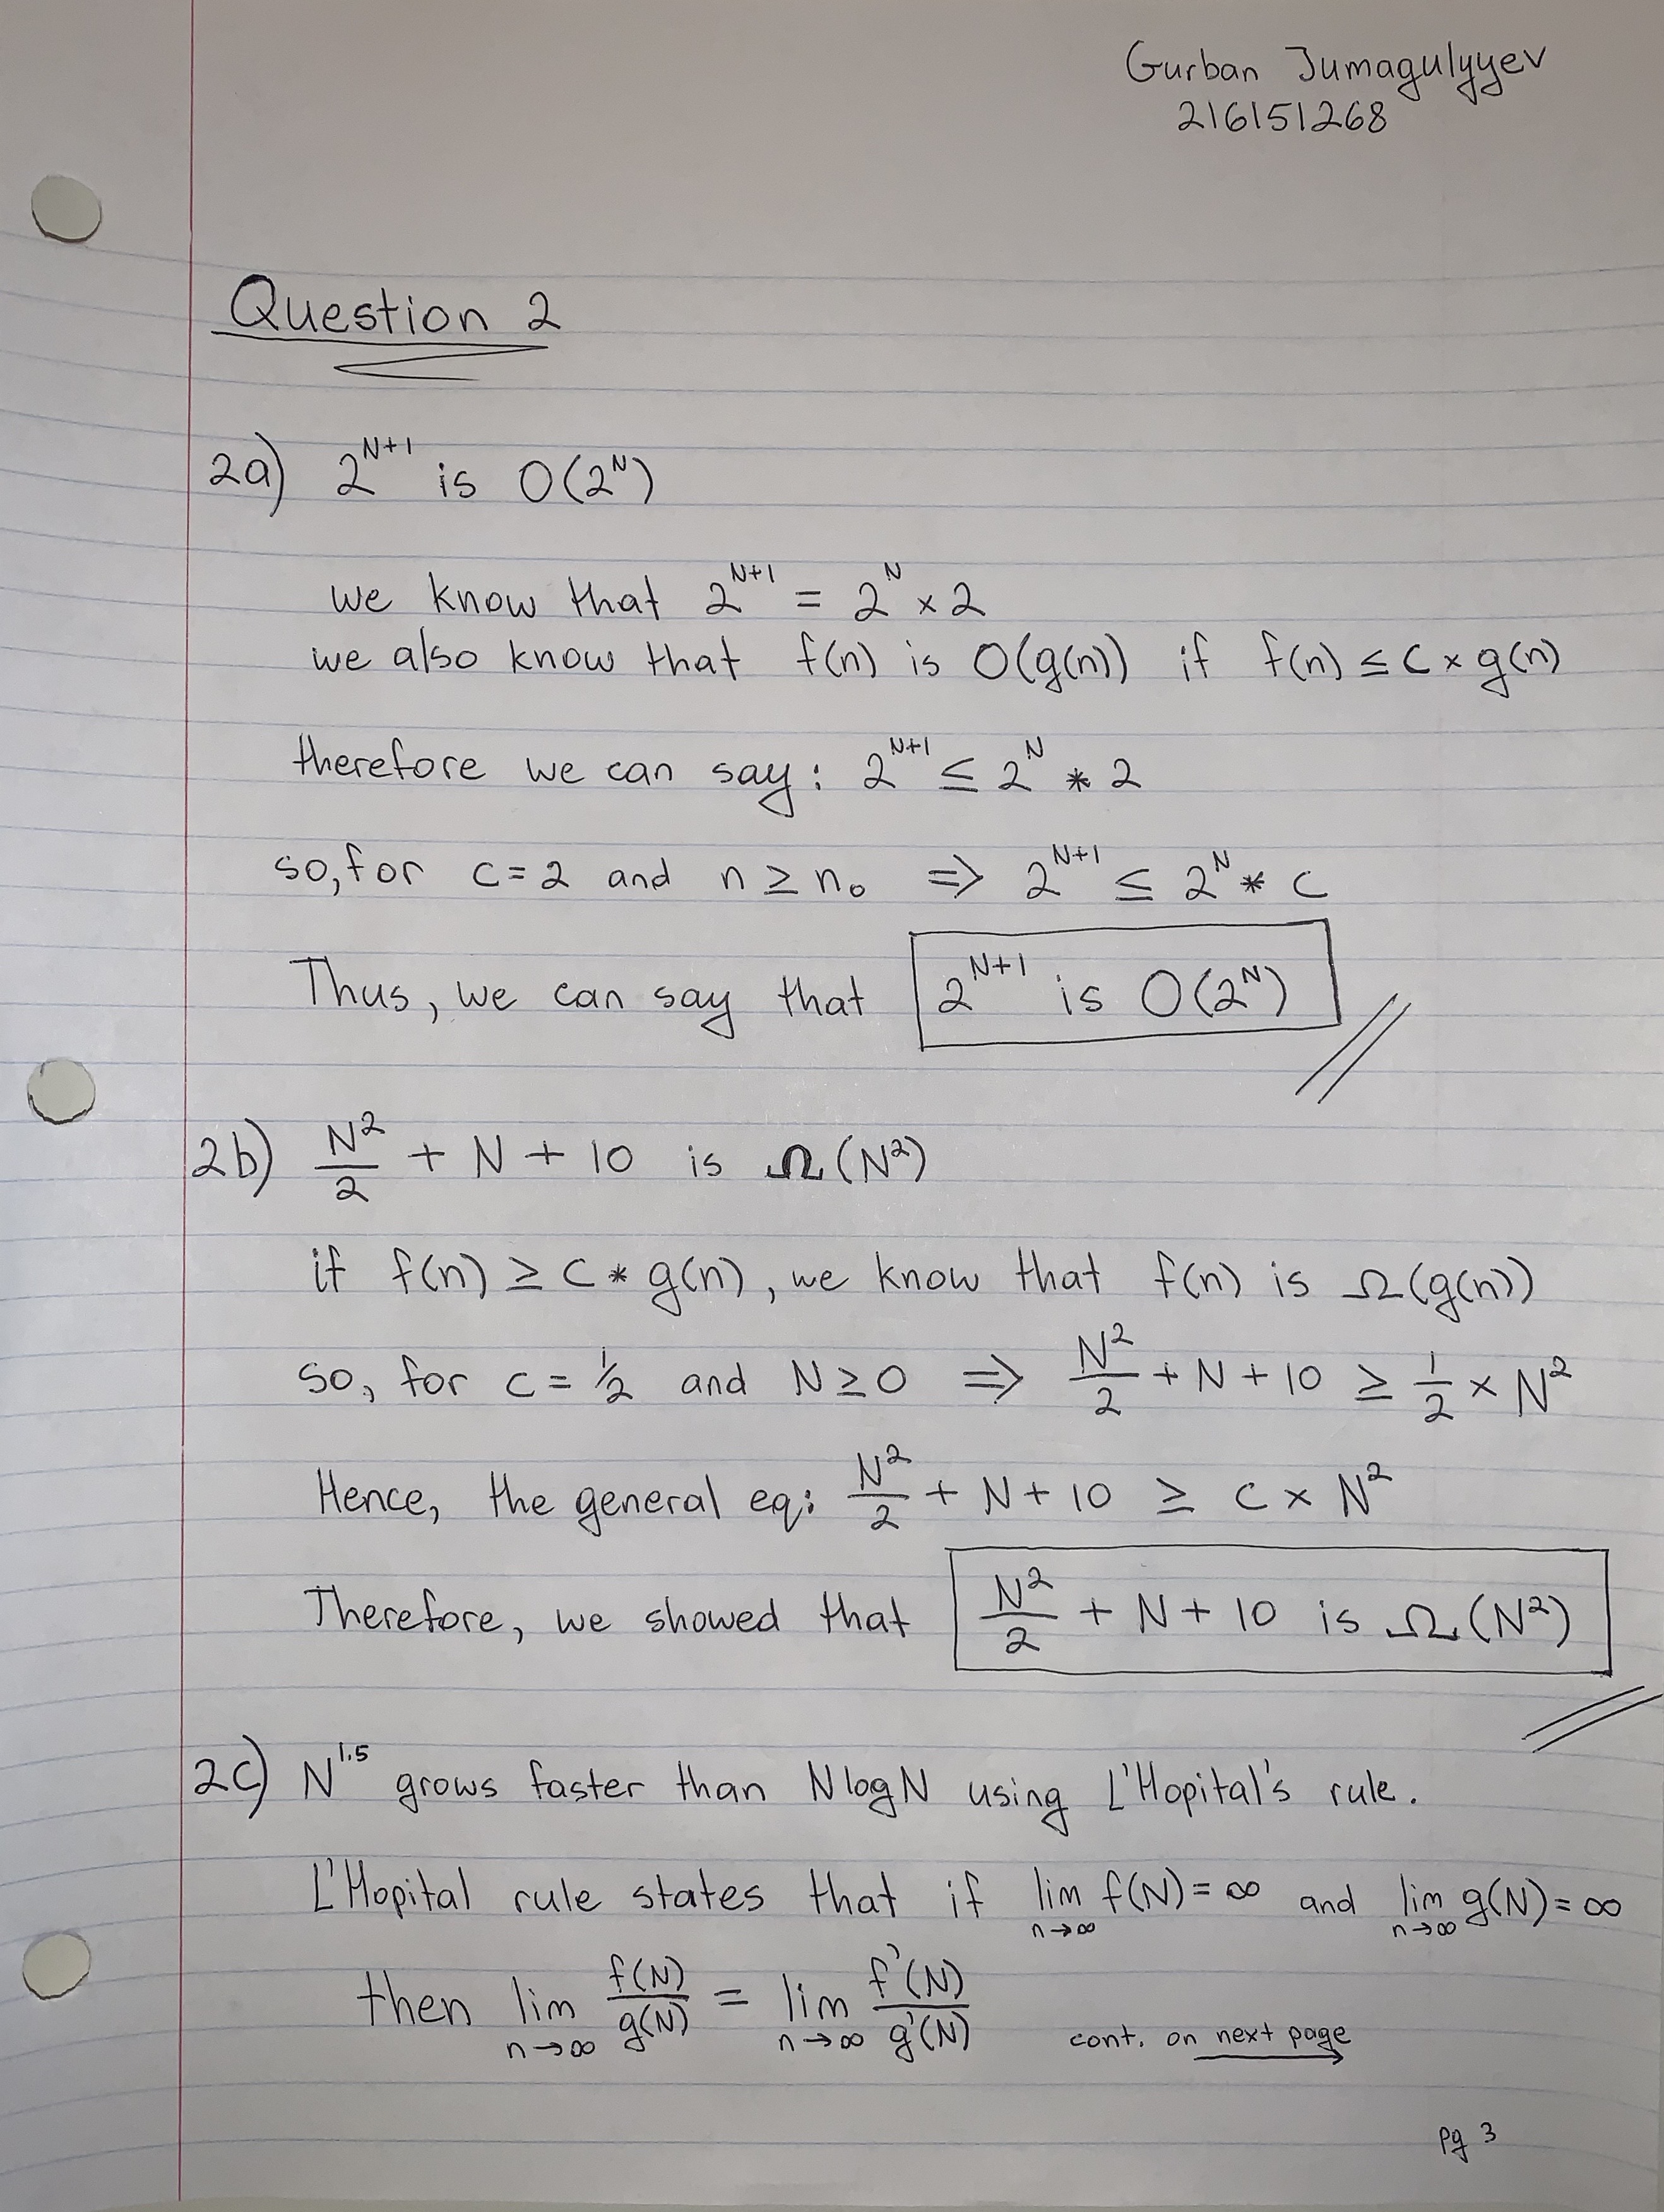 Gurban Jumagulyyev
216151268
Question 2
2a) 2^(N+1) is O(2^N)
we know that 2^(N+1) = 2^N × 2
we also know that f(n) is O(g(n)) if f(n) ≤ C × g(n)
therefore we can say: 2^(N+1) ≤ 2^N * 2
so, for c = 2 and n ≥ n₀ ⇒ 2^(N+1) ≤ 2^N * c
Thus, we can say that 2^(N+1) is O(2^N)
2b) N²/2 + N + 10 is Ω(N²)
if f(n) ≥ C * g(n), we know that f(n) is Ω(g(n))
so, for c = 1/2 and N ≥ 0 ⇒ N²/2 + N + 10 ≥ 1/2 × N²
Hence, the general eq: N²/2 + N + 10 ≥ C × N²
Therefore, we showed that N²/2 + N + 10 is Ω(N²)
2c) N^1.5 grows faster than N log N using L'Hopital's rule.
L'Hopital rule states that if lim n→∞ f(N) = ∞ and lim n→∞ g(N) = ∞
then lim n→∞ f(N)/g(N) = lim n→∞ f'(N)/g'(N)
cont. on next page
pg 3